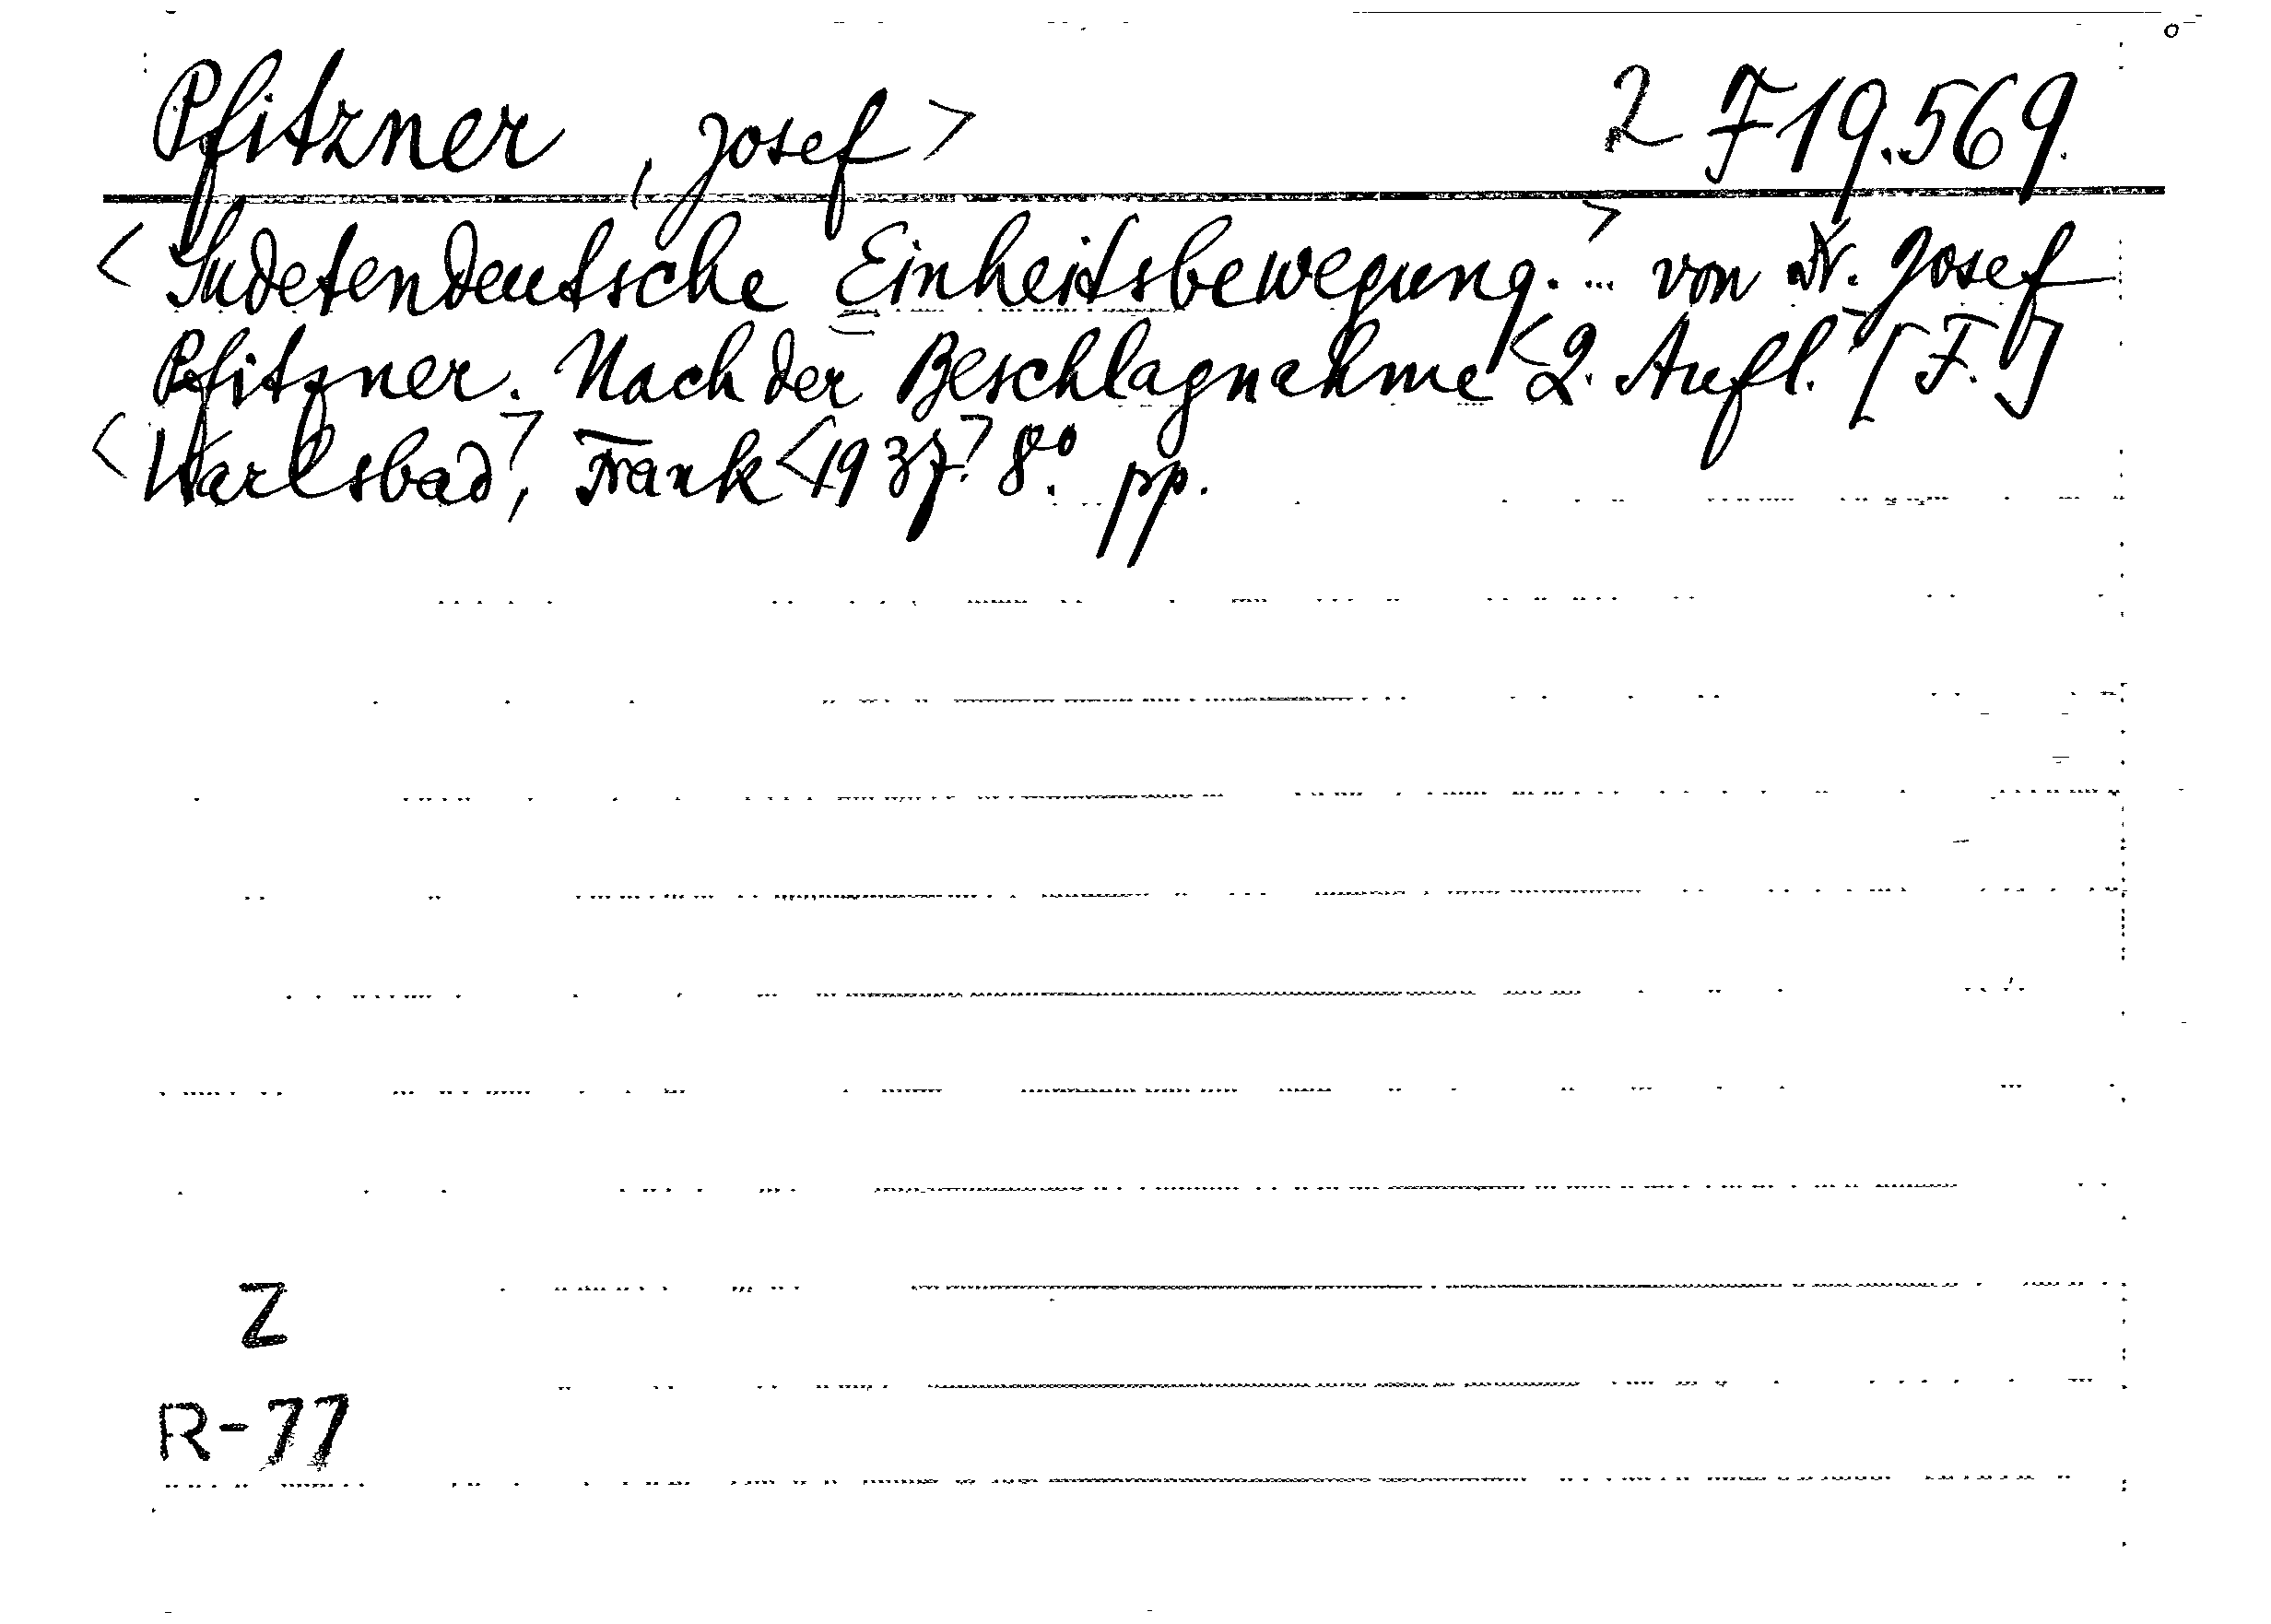 Pfitzner, Josef> 2 F 19.569.
<Sudetendeutsche Einheitsbewegung.>... von Dr. Josef
Pfitzner. Nach der Beschlagnahme <2. Aufl. [F.]
<Karlsbad>, Frank <1937> 8º. pp.
Z
R-77